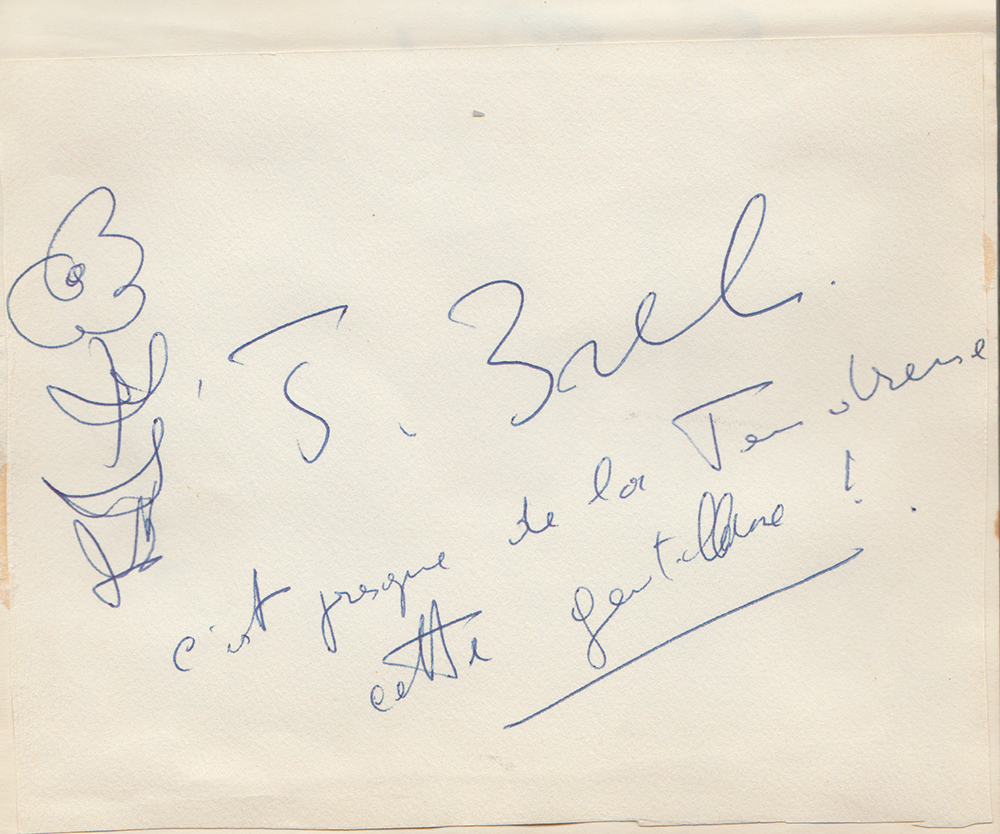 J. Brel.
c'est presque de la Tendresse
cette gentillesse !